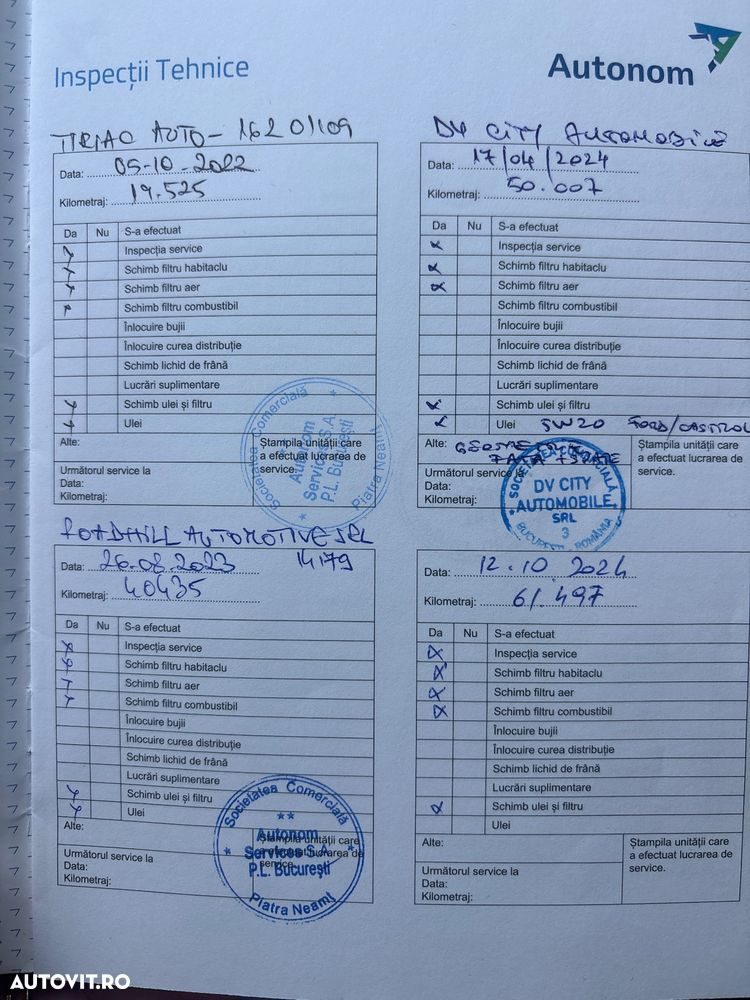 Inspecții Tehnice
Autonom
TIRIAC AUTO - 16201109
Data: 05-10-2022
Kilometraj: 19.525
Da Nu S-a efectuat
x Inspecția service
x Schimb filtru habitaclu
x Schimb filtru aer
x Schimb filtru combustibil
Înlocuire bujii
Înlocuire curea distribuție
Schimb lichid de frână
Lucrări suplimentare
x Schimb ulei și filtru
x Ulei
Alte:
Următorul service la
Data:
Kilometraj:
Ștampila unității care
a efectuat lucrarea de
service.
Societatea Comercială
Autonom
Services S.A.
P.L. București
Piatra Neamț
DV CITY AUTOMOBILE
Data: 17/04/2024
Kilometraj: 50.007
Da Nu S-a efectuat
x Inspecția service
x Schimb filtru habitaclu
x Schimb filtru aer
Schimb filtru combustibil
Înlocuire bujii
Înlocuire curea distribuție
Schimb lichid de frână
Lucrări suplimentare
x Schimb ulei și filtru
x Ulei 5W20 FORD/CASTROL
Alte: GEOMETRIE
FATA + SPATE
Următorul service la
Data:
Kilometraj:
Ștampila unității care
a efectuat lucrarea de
service.
SOCIETATEA COMERCIALA
DV CITY
AUTOMOBILE
SRL
3
BUCUREȘTI - ROMÂNIA
ROADHILL AUTOMOTIVE SRL
Data: 26.08.2023 14179
Kilometraj: 40435
Da Nu S-a efectuat
x Inspecția service
x Schimb filtru habitaclu
x Schimb filtru aer
x Schimb filtru combustibil
Înlocuire bujii
Înlocuire curea distribuție
Schimb lichid de frână
Lucrări suplimentare
x Schimb ulei și filtru
x Ulei
Alte:
Următorul service la
Data:
Kilometraj:
Ștampila unității care
a efectuat lucrarea de
service.
Societatea Comercială
Autonom
Services S.A.
P.L. București
Piatra Neamț
Data: 12.10.2024
Kilometraj: 61.497
Da Nu S-a efectuat
x Inspecția service
x Schimb filtru habitaclu
x Schimb filtru aer
x Schimb filtru combustibil
Înlocuire bujii
Înlocuire curea distribuție
Schimb lichid de frână
Lucrări suplimentare
x Schimb ulei și filtru
Ulei
Alte:
Următorul service la
Data:
Kilometraj:
Ștampila unității care
a efectuat lucrarea de
service.
AUTOVIT.RO